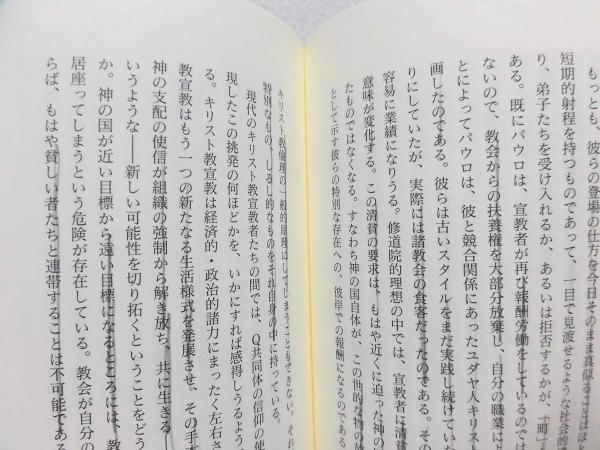 もっとも、彼らの登場の仕方を今日そのまま真似ることはほと
短期的射程を持つものであって、一目で見渡せるような社会的
り、弟子たちを受け入れるか、あるいは拒否するかが、「町」
ある。既にパウロは、宣教者が再び報酬労働をしているのでは
ないので、教会からの扶養権を大部分放棄し、自分の職業によ
とによってパウロは、彼と競合関係にあったユダヤ人キリスト
画したのである。彼らは古いスタイルをまだ実践し続けていた
りにしていたが、実際には諸教会の食客だったのである。その
容易に業績になりうる。修道院的理想の中では、宣教者に清貧
意味が変化する。この清貧の要求は、もはや近くに迫った神の
たものではなくなる。すなわち神の国自体が、この世的な物の放
として示す彼らの特別な存在への、彼岸での報酬になるのである
キリスト教倫理の一般的原理にしてしまうこともできない。それ
特別なもの、しるし的なものをそれ自身の中に持っている。
現代のキリスト教宣教者たちの間では、Q共同体の信仰の使
現したこの挑発の何ほどかを、いかにすれば感得しうるよう
る。キリスト教宣教は経済的・政治的諸力にまったく左右さ
教宣教はもう一つの新たなる生活様式を発展させ、その手本
神の支配の使信が組織の強制から解き放ち、共に生きる――
いうような――新しい可能性を切り拓くということをどう
か。神の国が近い目標から遠い目標になるところには、教
居座ってしまうという危険が存在している。教会が自分の
らば、もはや貧しい者たちと連帯することは不可能である